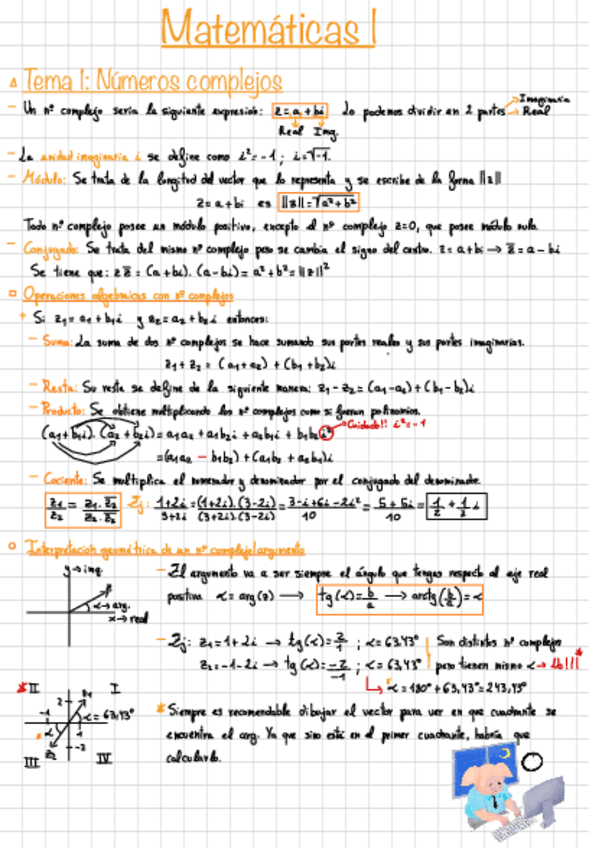 Matemáticas I
Tema 1: Números complejos
- Un nº complejo sería la siguiente expresión: z = a + bi Lo podemos dividir en 2 partes → Imaginaria → Real
Real Img.
- La unidad imaginaria i se define como i² = -1 ; i = √-1.
- Módulo: Se trata de la longitud del vector que lo representa y se escribe de la forma ||z||
z = a + bi es ||z|| = √a² + b²
Todo nº complejo posee un módulo positivo, excepto el nº complejo z=0, que posee módulo nulo.
- Conjugado: Se trata del mismo nº complejo pero se cambia el signo del centro. z = a + bi → z̅ = a - bi
Se tiene que: z z̅ = (a + bi). (a - bi) = a² + b² = ||z||²
Operaciones algebraicas con nº complejos
+ Si z₁ = a₁ + b₁i y z₂ = a₂ + b₂i entonces:
- Suma: La suma de dos nº complejos se hace sumando sus partes reales y sus partes imaginarias.
z₁ + z₂ = (a₁ + a₂) + (b₁ + b₂)i
- Resta: Su resta se define de la siguiente manera: z₁ - z₂ = (a₁ - a₂) + (b₁ - b₂)i
- Producto: Se obtiene multiplicando los nº complejos como si fueran polinomios.
(a₁ + b₁i). (a₂ + b₂i) = a₁a₂ + a₁b₂i + a₂b₁i + b₁b₂i² → Cuidado!! i² = -1
= (a₁a₂ - b₁b₂) + (a₁b₂ + a₂b₁)i
- Cociente: Se multiplica el numerador y denominador por el conjugado del denominador.
z₁/z₂ = z₁. z̅₂/z₂. z̅₂ Ej: 1+2i/3+2i = (1+2i).(3-2i)/(3+2i).(3-2i) = 3-i+6i-2i²/10 = 5+5i/10 = 1/2 + 1/2 i
Interpretación geométrica de un nº complejo/argumento
y → img.
α → arg.
x → real
- El argumento va a ser siempre el ángulo que tengas respecto al eje real
positiva α = arg(z) → tg(α) = b/a → arctg(b/a) = α
- Ej: z₁ = 1 + 2i → tg(α) = 2/1 ; α = 63,43° Son distintos nº complejos
z₂ = -1 - 2i → tg(α) = -2/-1 ; α = 63,43° pero tienen mismo α →
α = 180° + 63,43° = 243,43°
II I
2 z₁
-1 1 α = 63,43°
α
z₂ -2
III IV
* Siempre es recomendable dibujar el vector para ver en que cuadrante se
encuentra el arg. Ya que sino está en el primer cuadrante, habría que
calcularlo.